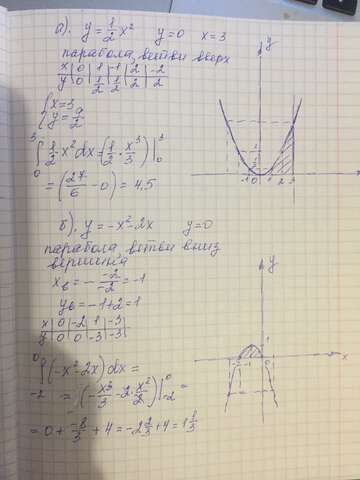 а). y = 1/2 x² y = 0 x = 3
парабола, ветви вверх
x | 0 | 1 | -1 | 2 | -2
y | 0 | 1/2 | 1/2 | 2 | 2
{ x = 3
{ y = 9/2
∫₀³ 1/2 · x² dx = (1/2 · x³/3) |₀³
= (27/6 - 0) = 4,5
y
-1 0 2 3
б). y = -x² - 2x y = 0
парабола ветви вниз
вершина
x_в = - -2/-2 = -1
y_в = -1 + 2 = 1
x | 0 | -2 | 1 | -3
y | 0 | 0 | -3 | -3
∫₋₂⁰ (-x² - 2x) dx =
= (-x³/3 - 2 · x²/2) |₋₂⁰ =
= 0 + -8/3 + 4 = -2 2/3 + 4 = 1 1/3
y
1
-2 -1
x